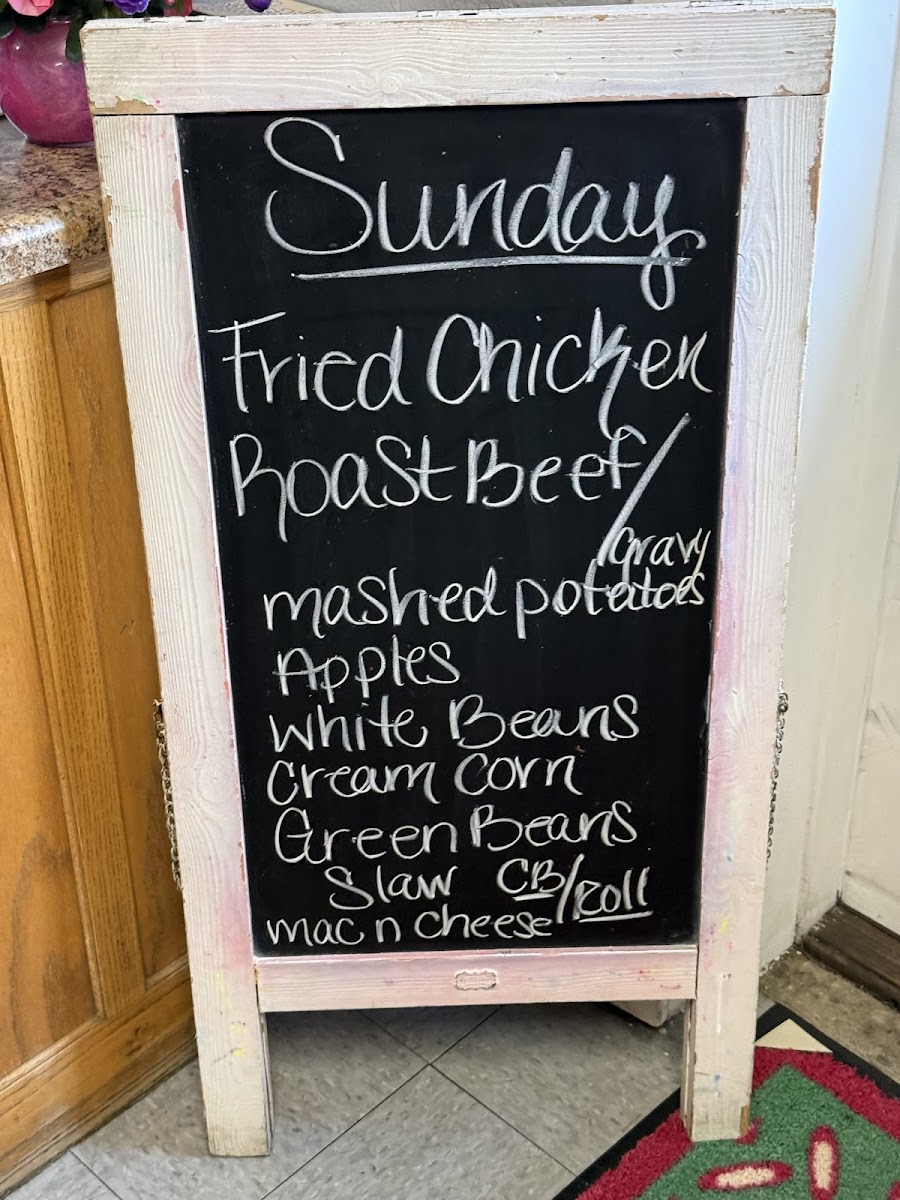 Sunday
Fried Chicken
Roast Beef/
gravy
mashed potatoes
Apples
White Beans
Cream Corn
Green Beans
Slaw CB/Roll
mac n cheese